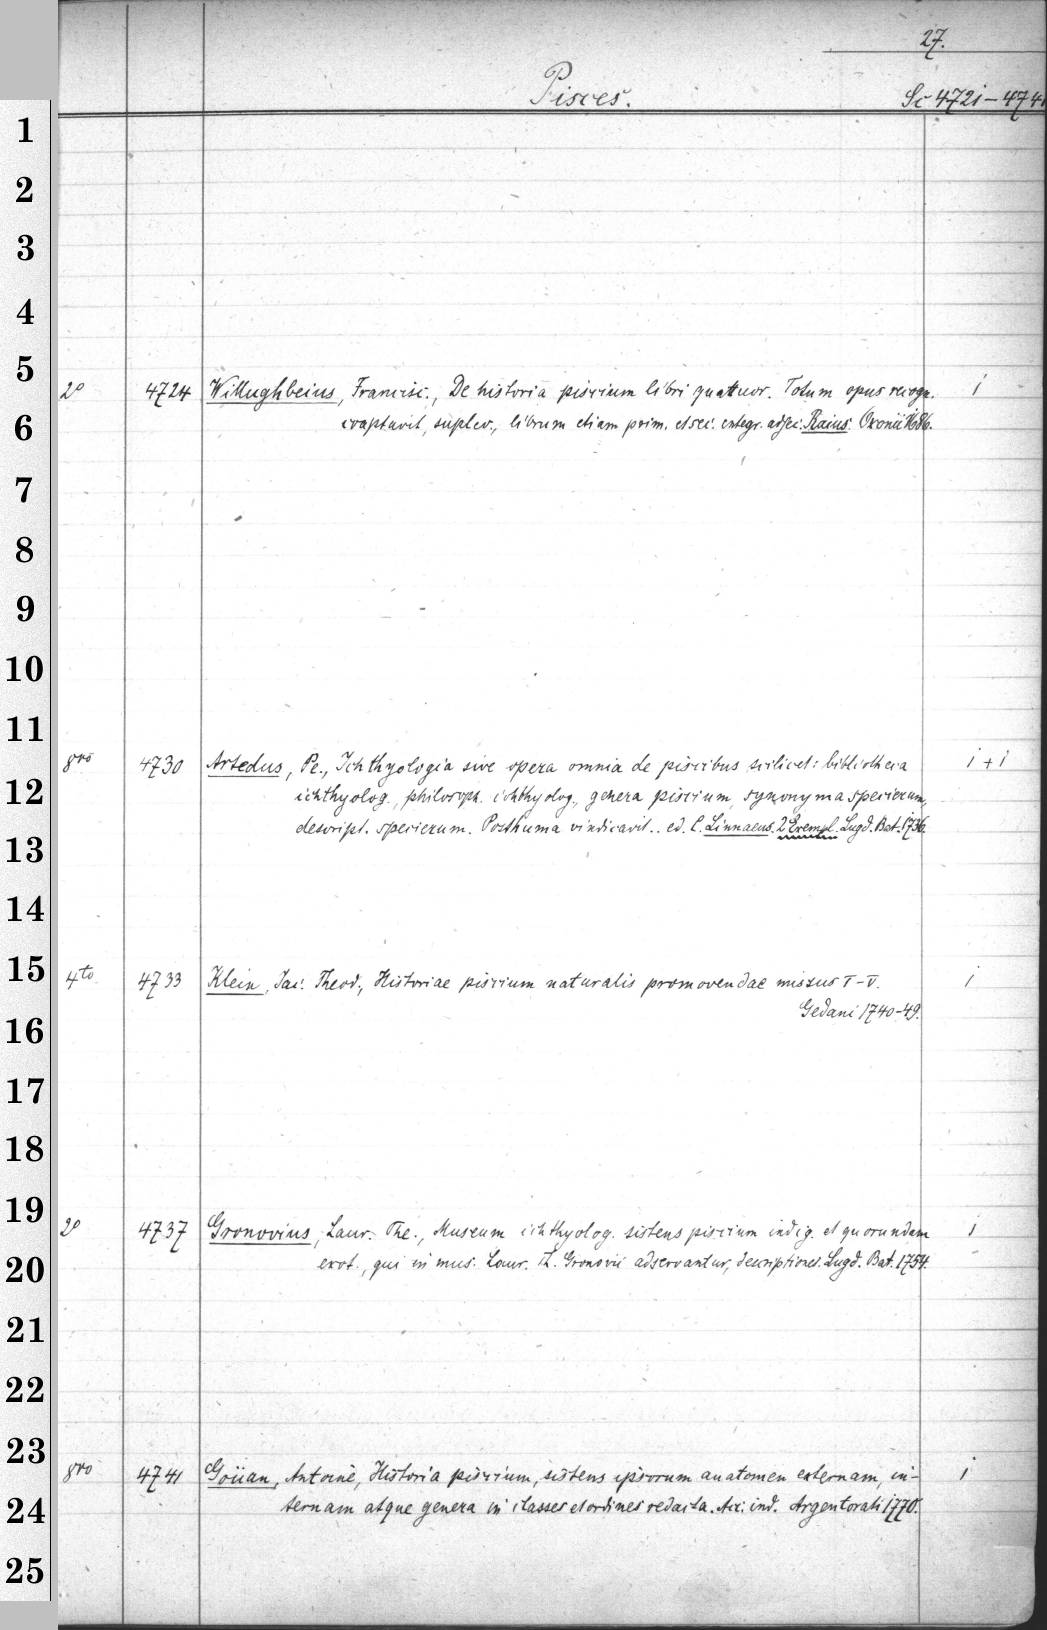 27.
Pisces.
Sc 4721-4741
1
2
3
4
5
2o 4724 Willughbeius, Francisc., De historia piscium libri quattuor. Totum opus recogn. 1
6
coaptavit, suplev., librum etiam prim. et sec. integr. adjec. Raius. Oxonii 1686.
7
8
9
10
11
8vo 4730 Artedus, Pe., Ichthyologia sive opera omnia de piscibus scilicet: bibliotheca 1 + 1
12
ichthyolog., philosoph. ichthyolog., genera piscium, synonyma specierum,
descript. specierum. Posthuma vindicavit.. ed. C. Linnaeus. 2 Exempl. Lugd. Bat. 1736.
13
14
15
4to 4733 Klein, Jac. Theod., Historiae piscium naturalis promovendae missus I-V. 1
Gedani 1740-49.
16
17
18
19
2o 4737 Gronovius, Laur. The., Museum ichthyolog. sistens piscium indig. et quorundam 1
20
exot., qui in mus. Laur. T. Gronovii adservantur, descriptiones. Lugd. Bat. 1754.
21
22
23
8vo 4741 Goüan, Antoine, Historia piscium, sistens ipsorum anatomen externam, in- 1
24
ternam atque genera in classes et ordines redacta. Acc. ind. Argentorati 1770.
25